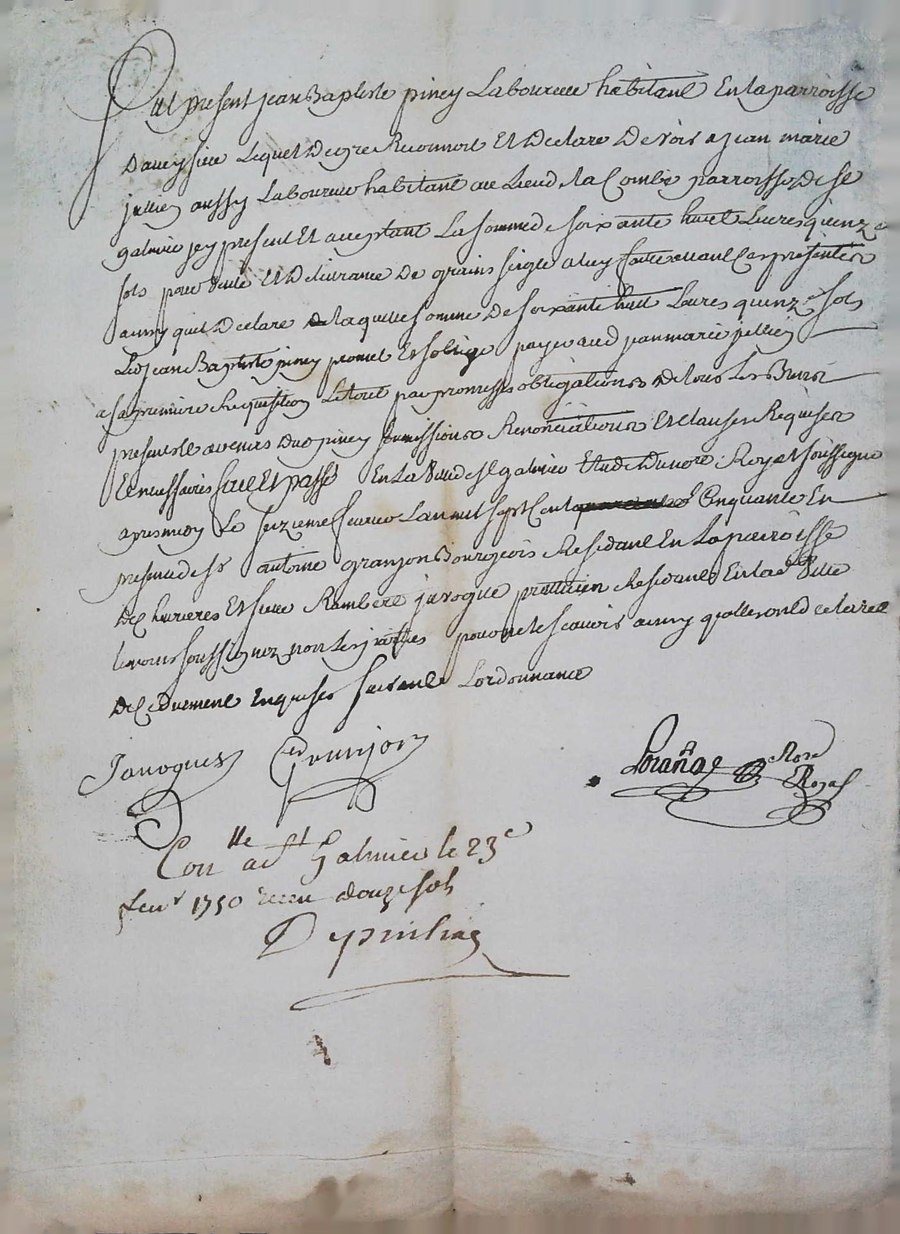 Fut present jean Baptiste piney Laboureur habitant En la parroisse
Daveysieu Lequel De gre Reconnoit Et Declare De voir a jean marie
jullien aussy Laboureur habitant au Lieu de la Combe parroisse De St
galmier jcy present Et acceptant La somme de soixante huit Livres quinze
sols pour vente Et Delivrance De grains seigle a luy faitte avant Ces presentes
ainsy quil Declare De laquelle somme De soixante huit Livres quinze sols
Led jean Baptiste piney promet Et soblige payer aud jean marie jullien
a sa premiere Requisition Le tout par promesses obligations De tous Les Biens
presents Et avenirs Dud piney soumissions Renonciations Et Clauses Requises
Et necessaires fait Et passé En La ville de St galmier Etude Du nore Royal soussigne
apres midy Le seizieme fevrier Lan mil sept Cent Cinquante En
presence de Sr antoine granjon Bourgeois Residant En La parroisse
De Churieres Et sieur Rambert javogue pratticien Residant En lad ville
temoins soussignez non Les parties pour ne le scavoir ainsy qu'elles ont declaré
De Ce duement Enquises suivant Lordonnance
Javogues Grunjon
nore
Royal
Conlle a St Galmier le 23e
fevr 1750 recu douze sols